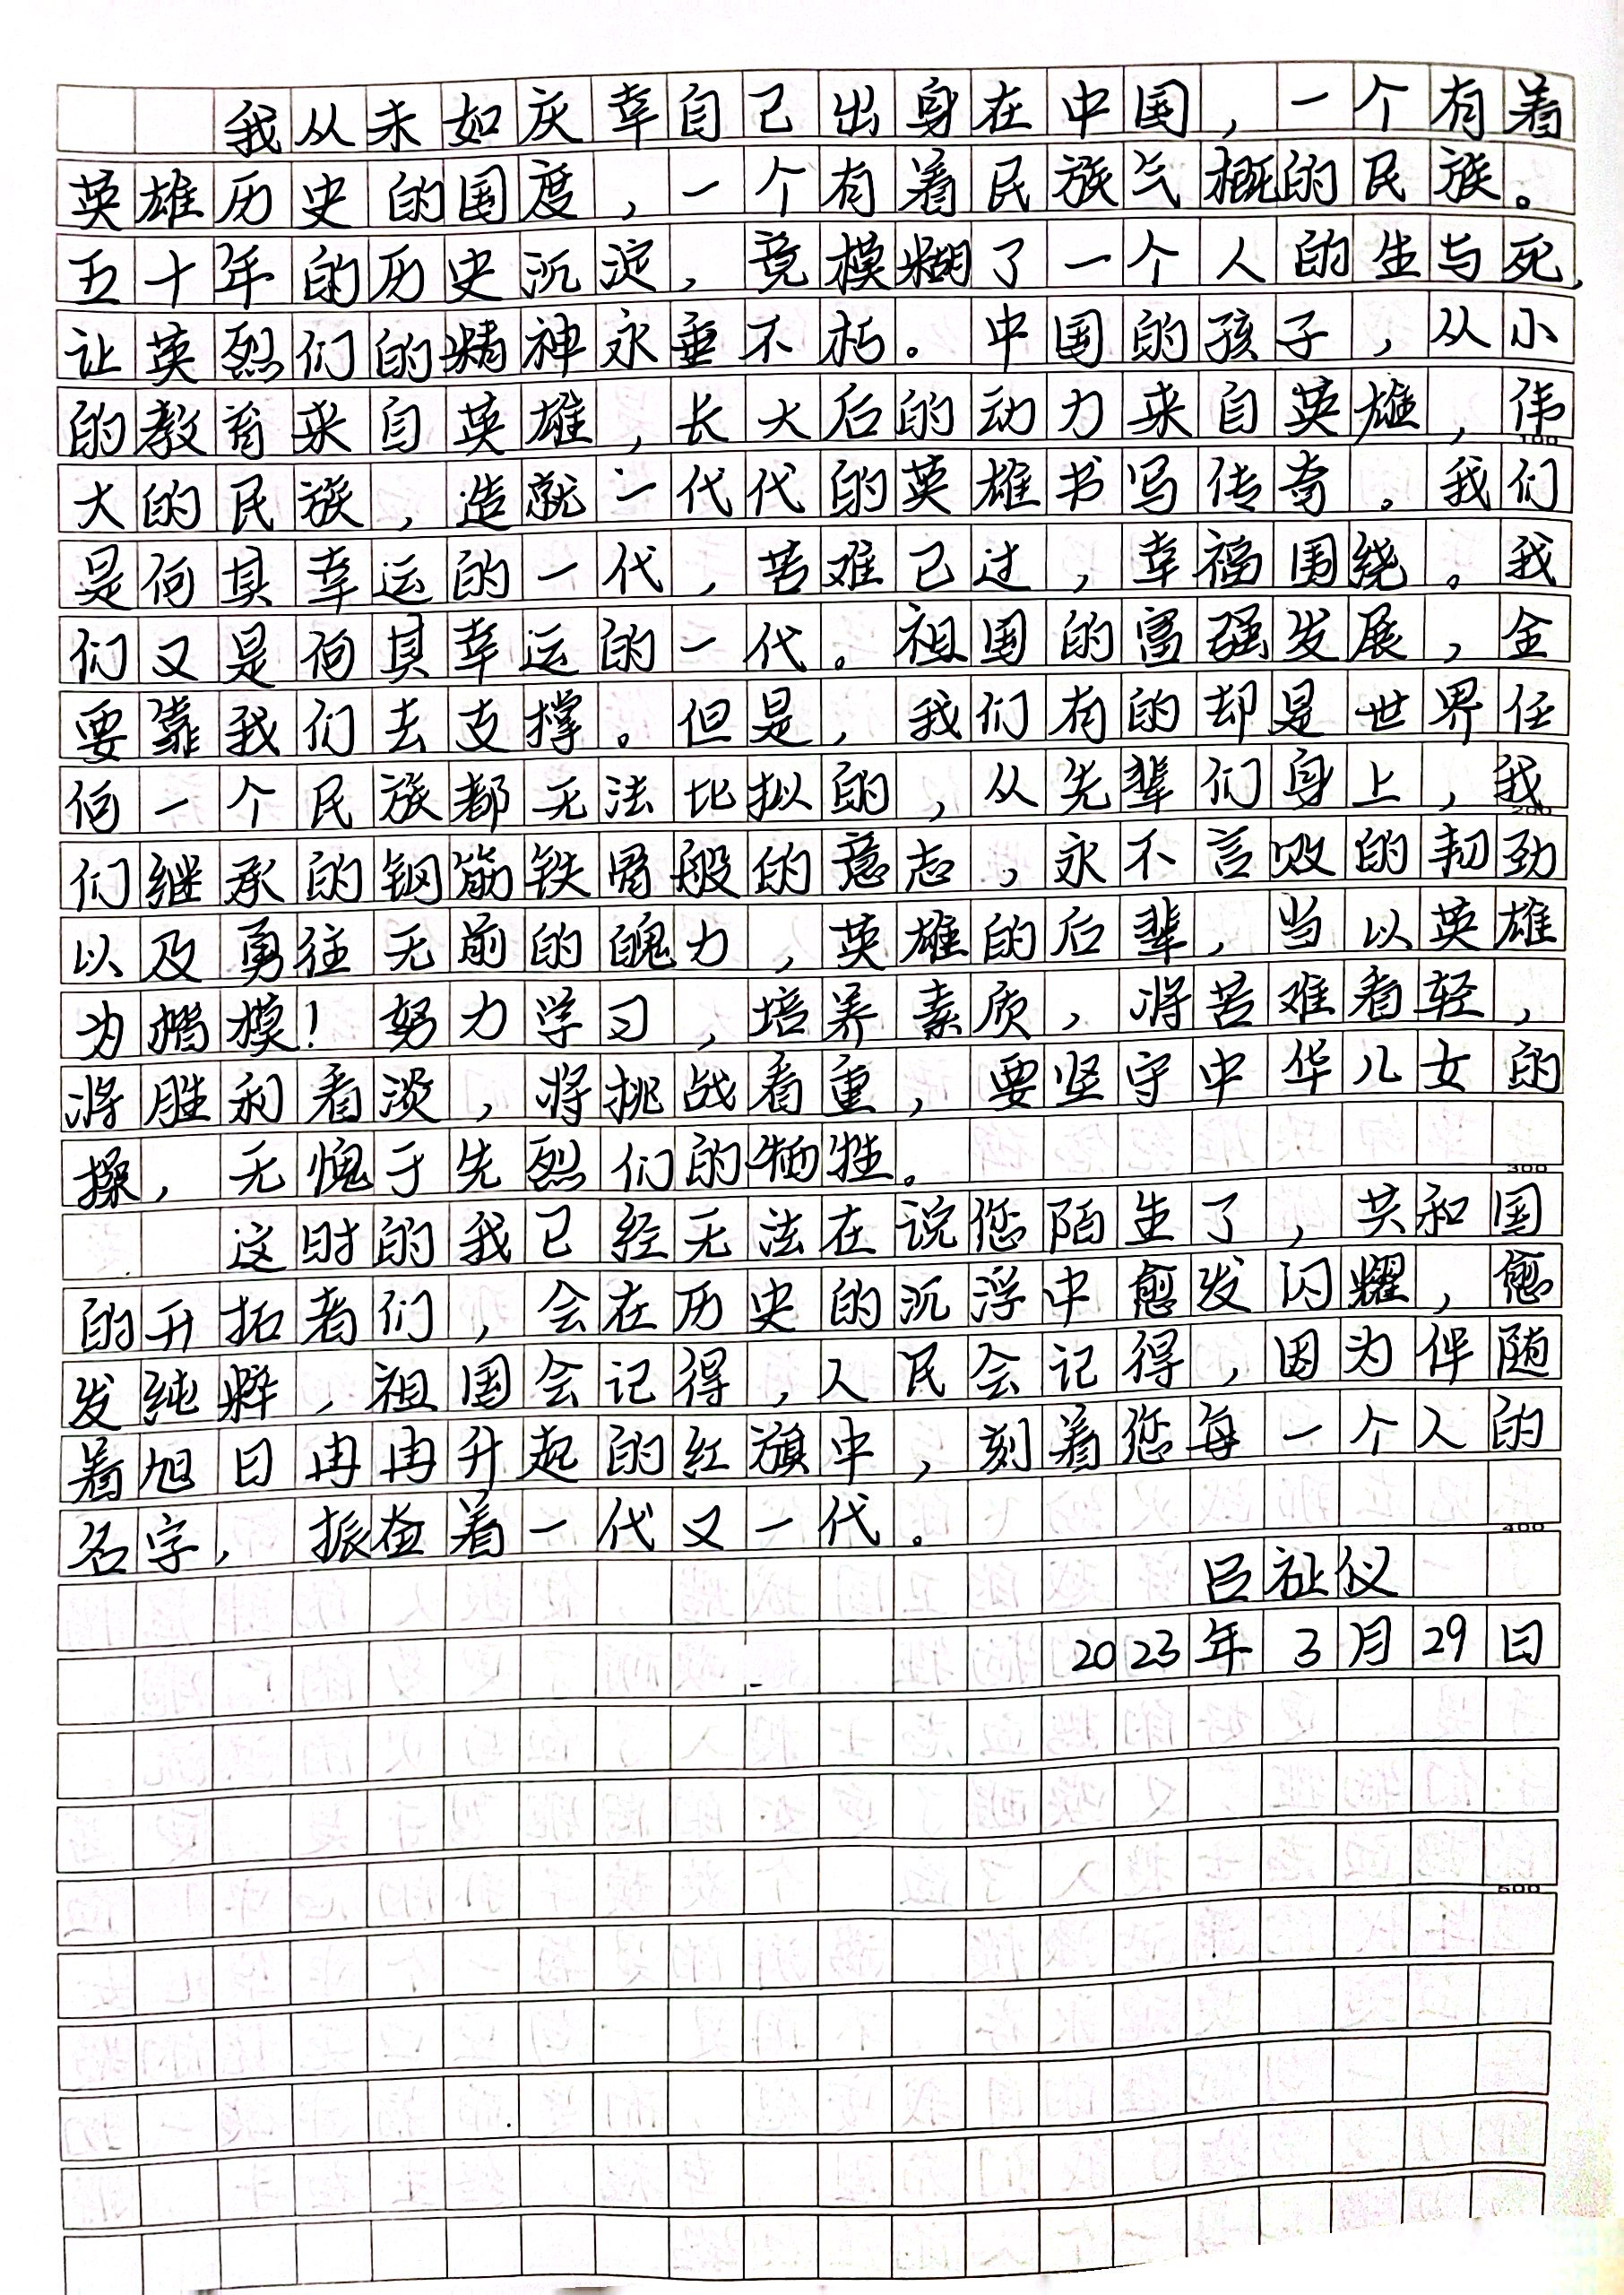 我从未如庆幸自己出身在中国，一个有着
英雄历史的国度，一个有着民族气概的民族。
五十年的历史沉淀，竟模糊了一个人的生与死，
让英烈们的精神永垂不朽。中国的孩子，从小
的教育来自英雄，长大后的动力来自英雄，伟
100
大的民族，造就一代代的英雄书写传奇。我们
是何其幸运的一代，苦难已过，幸福围绕。我
们又是何其幸运的一代。祖国的富强发展，全
要靠我们去支撑。但是，我们有的却是世界任
何一个民族都无法比拟的，从先辈们身上，我
200
们继承的钢筋铁骨般的意志，永不言败的韧劲
以及勇往无前的魄力，英雄的后辈，当以英雄
为楷模！努力学习，培养素质，将苦难看轻，
将胜利看淡，将挑战看重，要坚守中华儿女的
操，无愧于先烈们的牺牲。
300
这时的我已经无法在说您陌生了，共和国
的开拓者们，会在历史的沉浮中愈发闪耀，愈
发纯粹，祖国会记得，人民会记得，因为伴随
着旭日冉冉升起的红旗中，刻着您每一个人的
名字，振奋着一代又一代。
400
吕祉仪
2023年3月29日
500